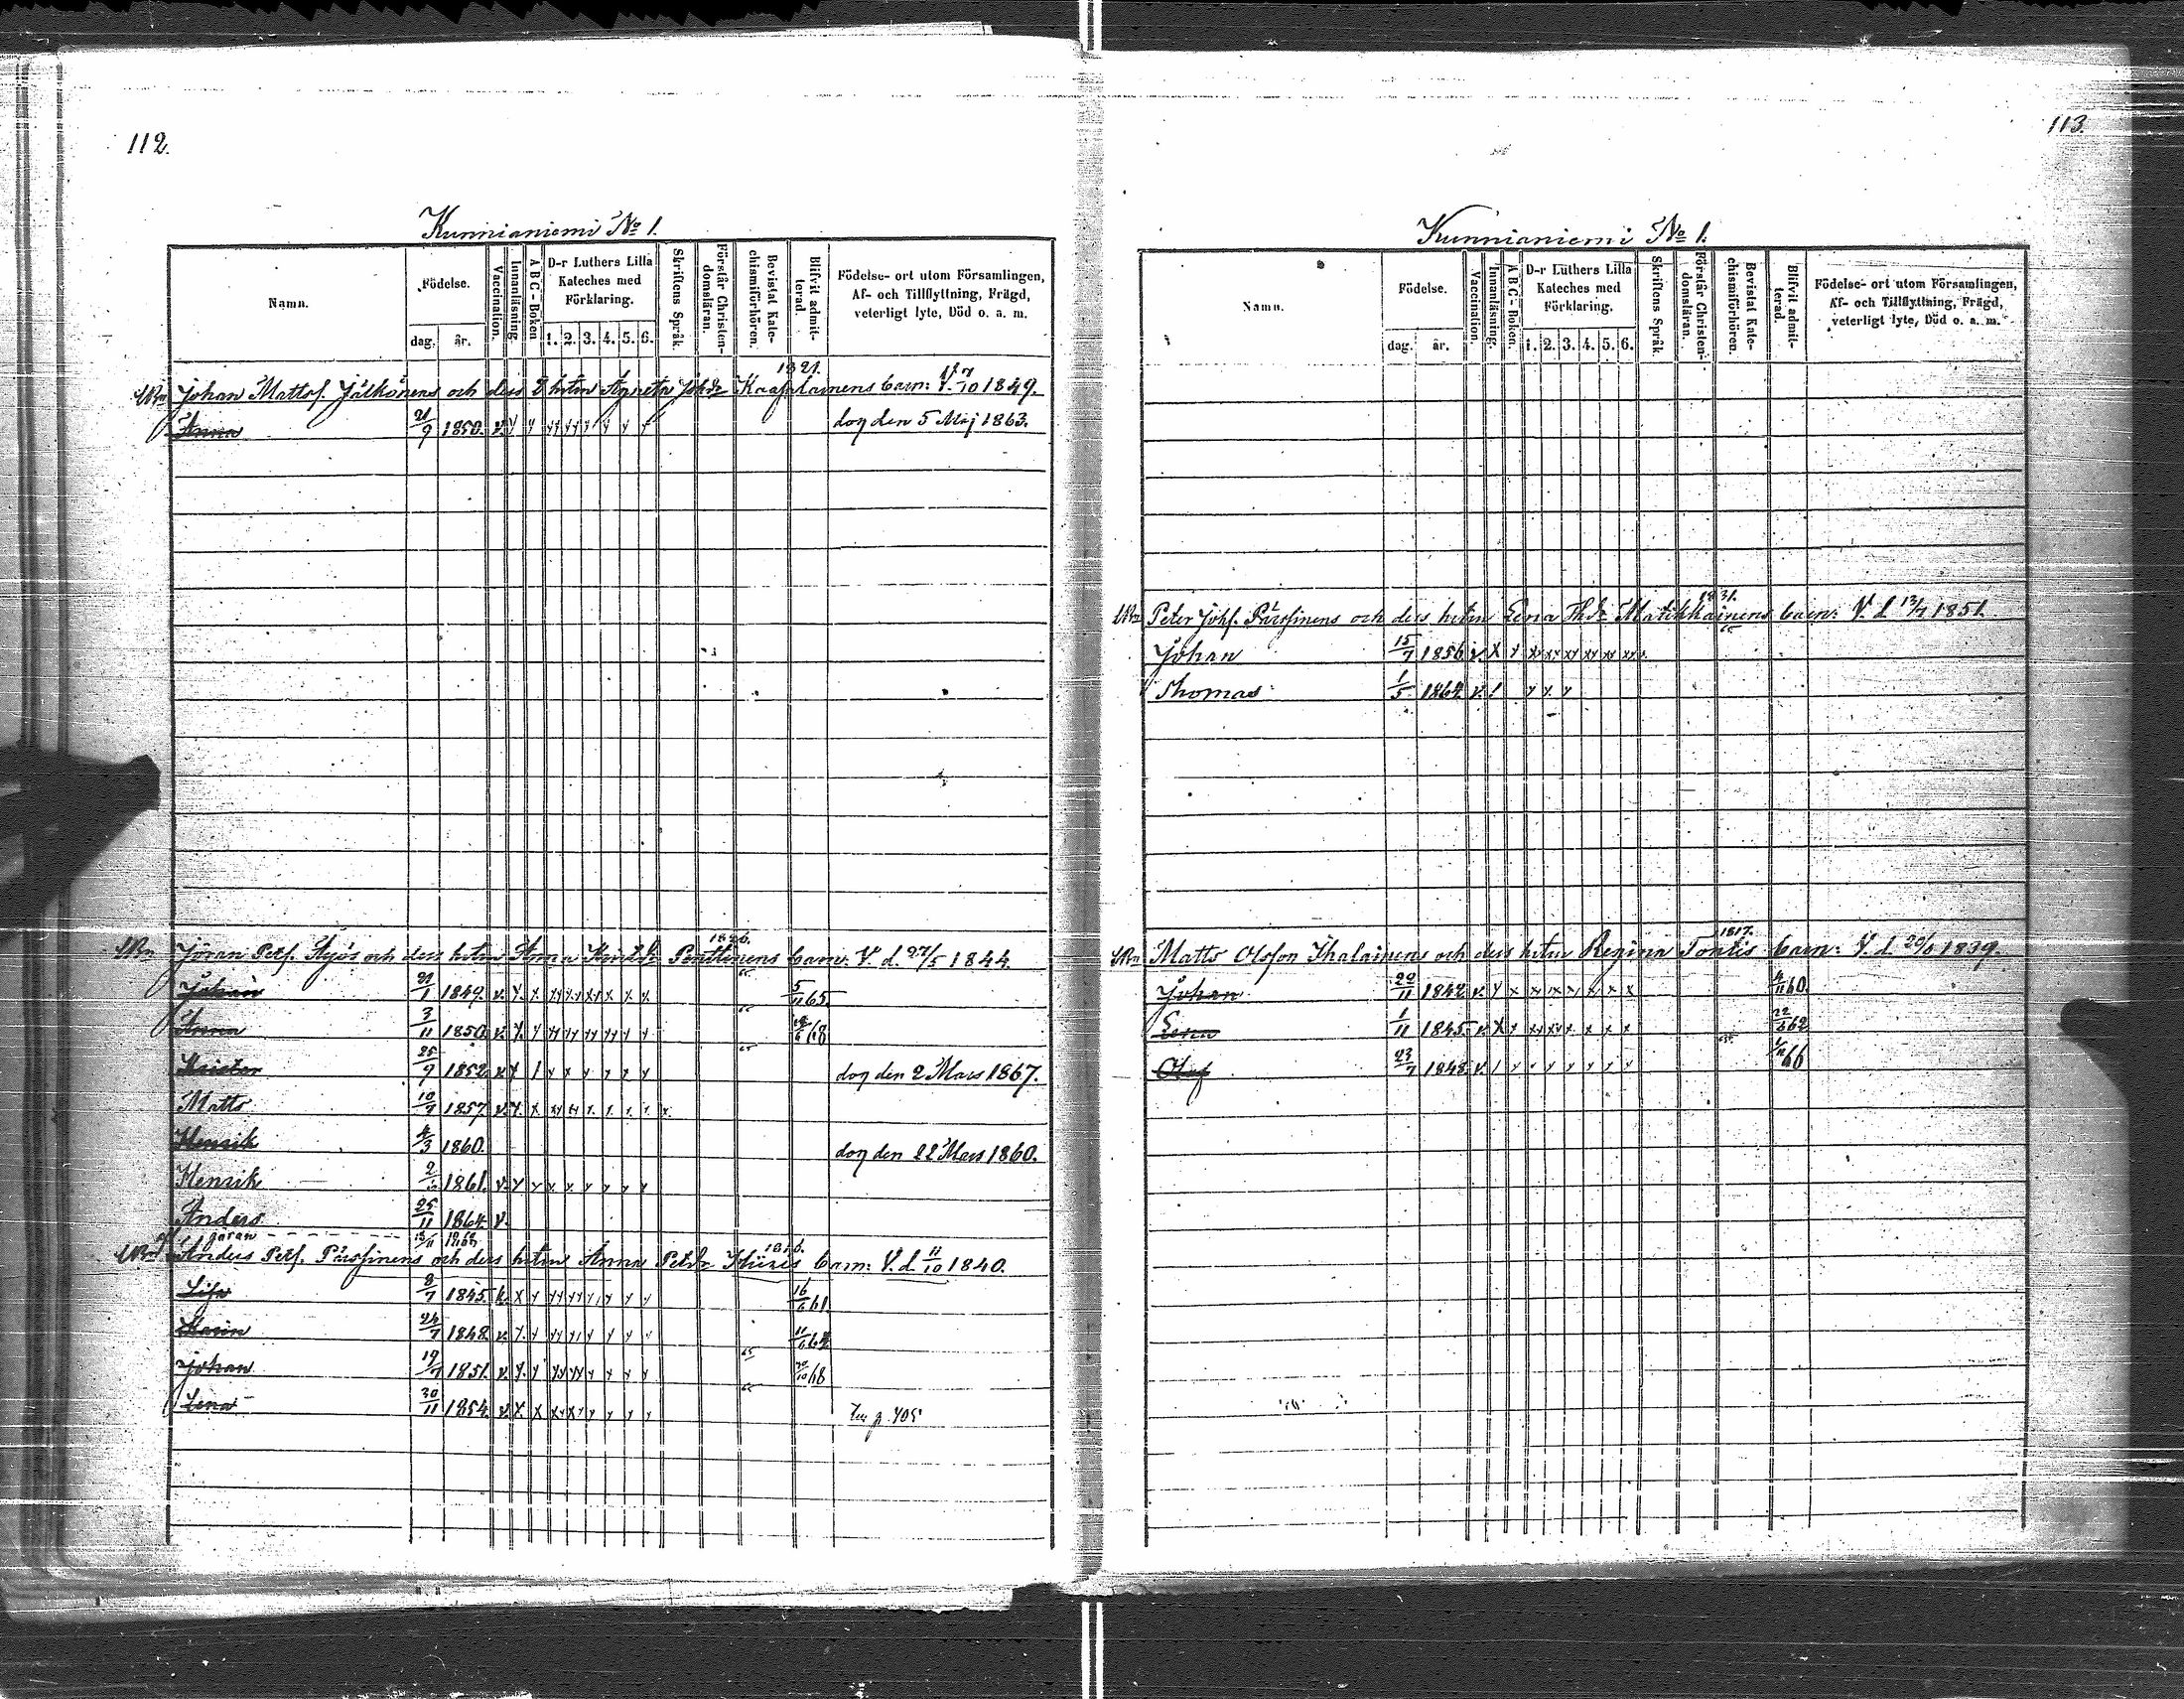 112.
Kunnianiemi No 1.
Namn.
Födelse.
dag.
år.
Vaccination.
Innanläsning.
A B C-Boken
D-r Luthers Lilla Kateches med Förklaring.
1. 2. 3. 4. 5. 6.
Skriftens Språk.
Förstår Christendomsläran.
Bevistat Katechismiförhören.
Blifvit admitterad.
Födelse- ort utom Församlingen, Af- och Tillflyttning, Frägd, veterligt lyte, Död o. a. m.
1821.
Johan Mattsf. Jälkönens och dess 2 hstru Agneta Johsdr Kaasalainens barn: 1849.
Anna 21/9 1850. v. dog den 5 Maj 1863.
1826.
Jöran Petf. Äyjös och dess hstru Anna Penttinens barn: V. d. 27/5 1844.
Johan 21/1 1849. v. 5/11 65.
Anna 3/11 1850. v. 68
Krister 25/9 1852 v. dog den 2 Mars 1867.
Matts 10/7 1857 v.
Henrik 4/3 1860. dog den 22 Mars 1860.
Henrik 1861. v.
Anders 25/11 1864 v.
Jöran
1816.
Anders Petf. Pärssinens och dess hstru Anna Petdr barn: V. d. 11/10 1840.
Lisa 8/7 1845. 16/6 61.
Karin 24/7 1848. v. 64.
Johan 19/7 1851. v. 68
Lena 30/11 1854. v. p. 405
113.
Kunnianiemi No 1.
Namn.
Födelse.
dag.
år.
Vaccination.
Innanläsning.
A B C-Boken.
D-r Luthers Lilla Kateches med Förklaring.
1. 2. 3. 4. 5. 6.
Skriftens Språk.
Förstår Christendomsläran.
Bevistat Katechismiförhören.
Blifvit admitterad.
Födelse- ort utom Församlingen, Af- och Tillflyttning, Frägd, veterligt lyte, Död o. a. m.
1831.
Peter Johf. Pärssinens och dess hstru Lena Thdr Matikkainens barn: V. d. 13/7 1851.
Johan 15/7 1856 v.
Thomas 1/5 1862 v.
1817.
Matts Olsson Ihalainens och dess hstru Regina Tontis barn: V. d. 1839.
Johan 29/11 1842 v. 4/11 60.
Lena 1/11 1845. v. 22/6 62
Olof 23/7 1848. v. 66